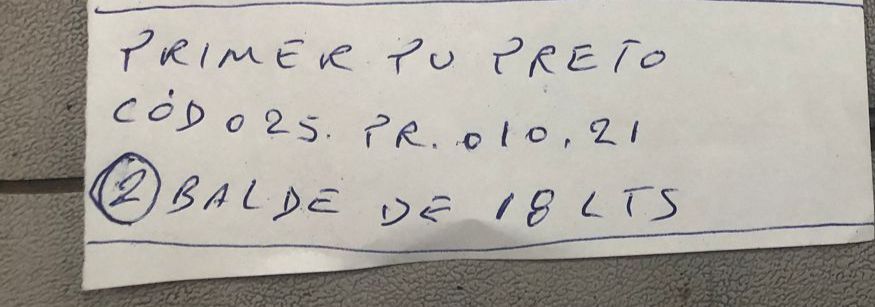 PRIMER PU PRETO
CÓD 025. PR. 010.21
2 BALDE DE 18 LTS